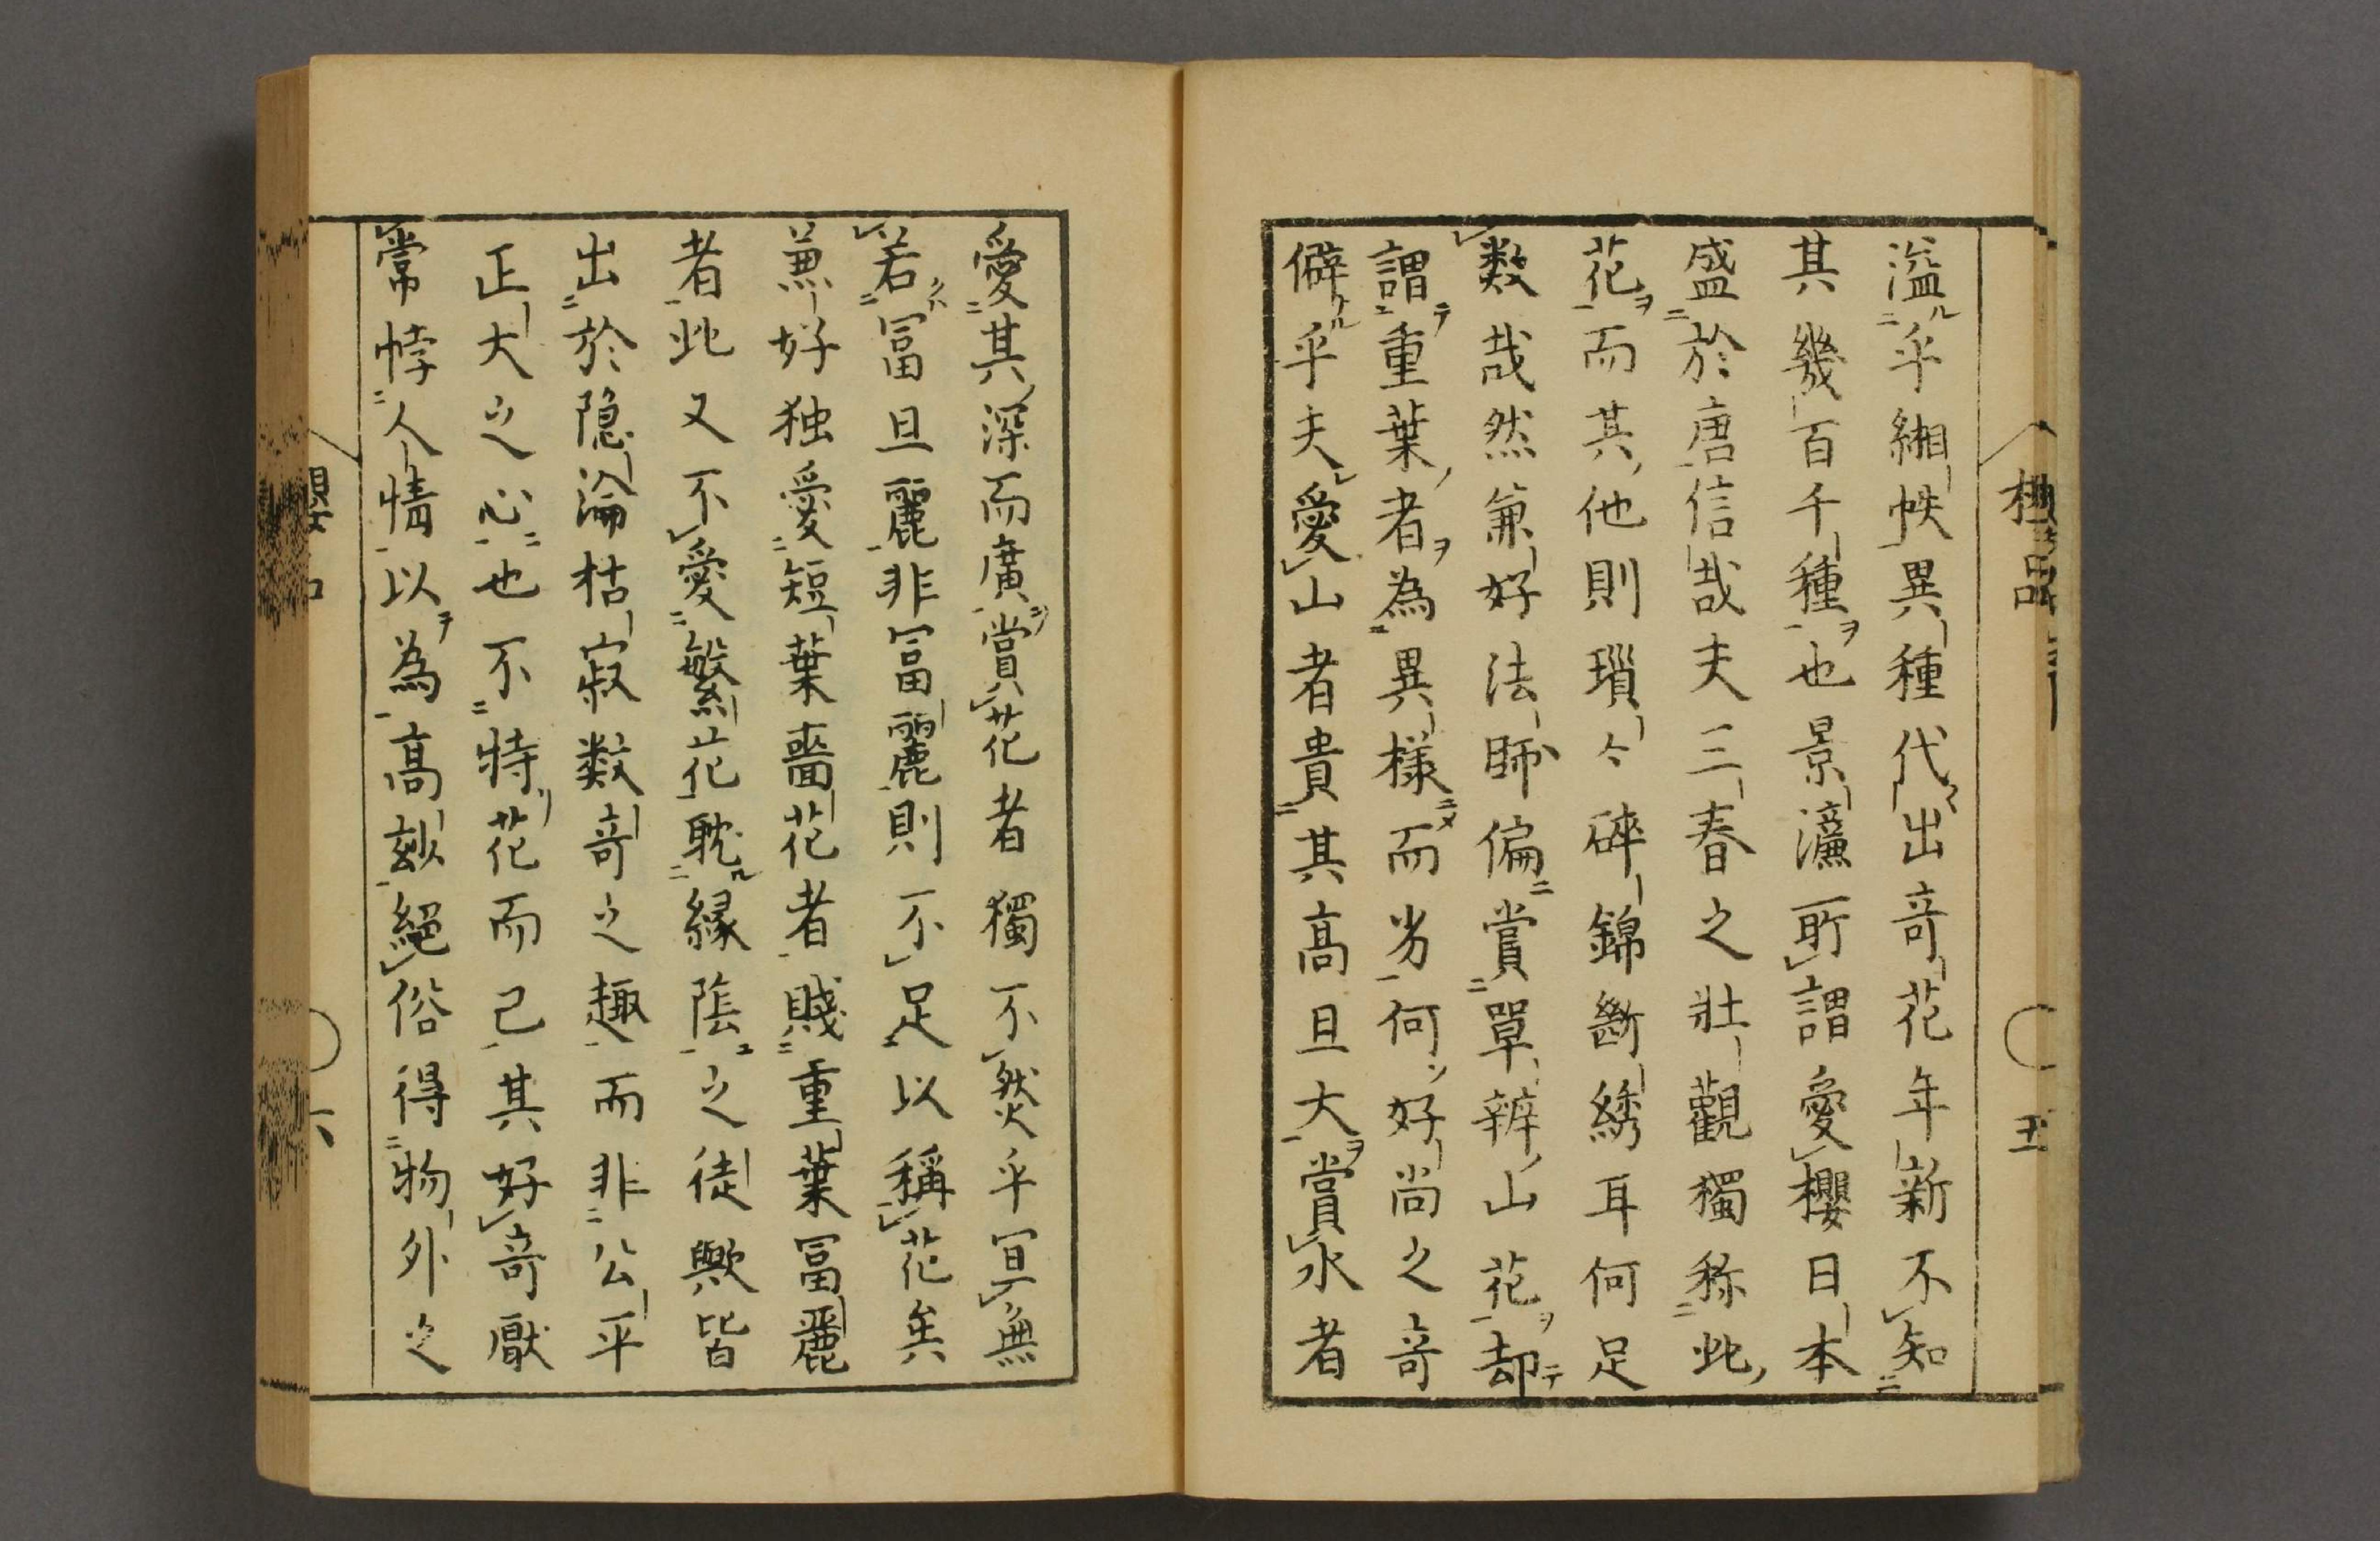 溢乎緗帙異種代出竒花年年新不知
其幾百千種也景濂所謂愛櫻日本
盛於唐信哉夫三春之壯觀獨称此
花而其他則瑣々碎錦斷綉耳何足
数哉然兼好法師偏賞單辨山花却
謂重葉者為異樣而劣何好尚之竒
僻乎夫愛山者貴其高且大賞水者
愛其深而廣賞花者獨不然乎冝無
若冨且麗非冨麗則不足以稱花矣
兼好独愛短葉嗇花者賤重葉冨麗
者此又不愛繁花耽緑陰之徒歟皆
出於隐淪枯寂数竒之趣而非公平
正大之心也不特花而己其好竒厭
常悖人情以為高欤絕俗得物外之
櫻品
五
六